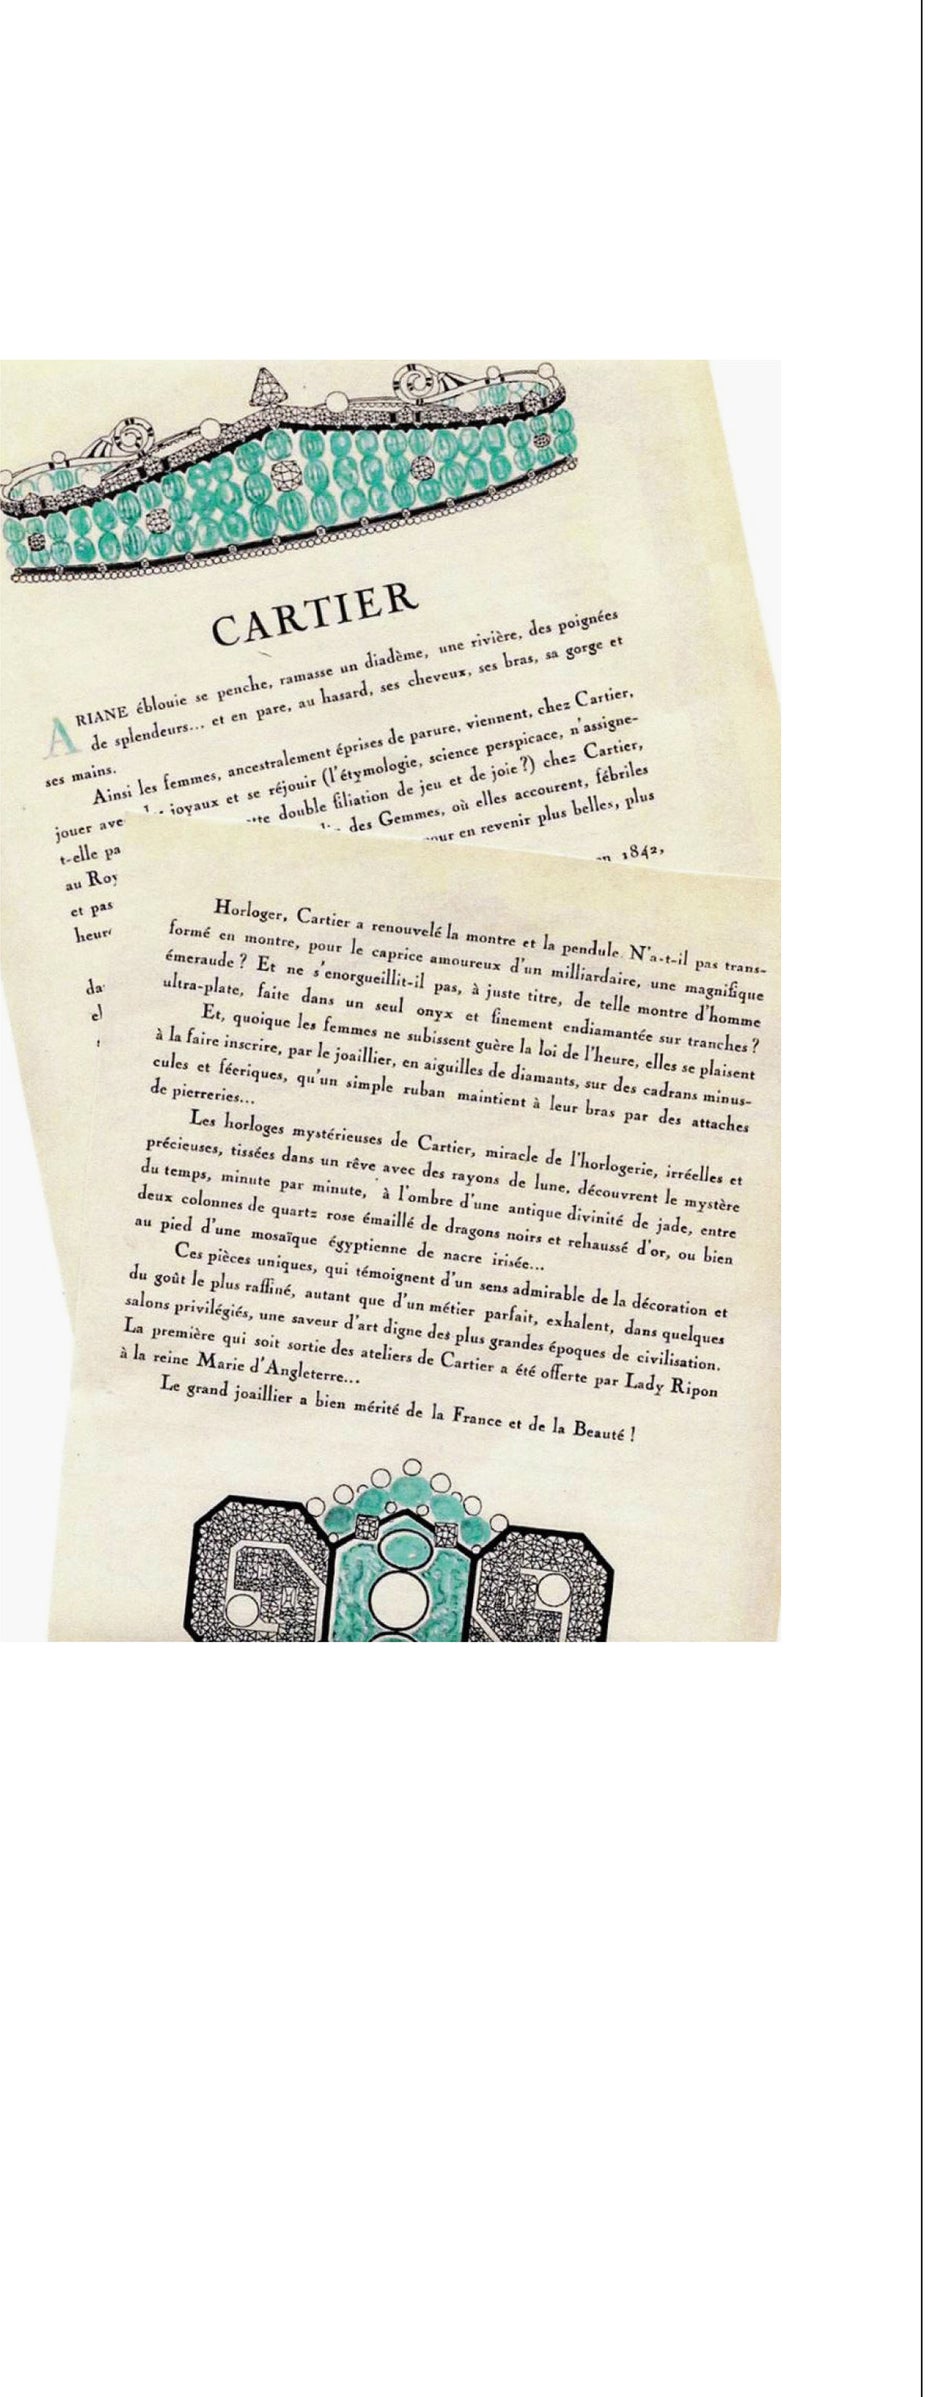 CARTIER
ARIANE éblouie se penche, ramasse un diadème, une rivière, des poignées
de splendeurs... et en pare, au hasard, ses cheveux, ses bras, sa gorge et
ses mains.
Ainsi les femmes, ancestralement éprises de parure, viennent, chez Cartier,
jouer avec joyaux et se réjouir (l'étymologie, science perspicace, n'assigne-
t-elle pa double filiation de jeu et de joie?) chez Cartier,
au Roy des Gemmes, où elles accourent, fébriles
et pas pour en revenir plus belles, plus
heure
en 1842,
da
el
Horloger, Cartier a renouvelé la montre et la pendule. N'a-t-il pas trans-
formé en montre, pour le caprice amoureux d'un milliardaire, une magnifique
émeraude ? Et ne s'enorgueillit-il pas, à juste titre, de telle montre d'homme
ultra-plate, faite dans un seul onyx et finement endiamantée sur tranches ?
Et, quoique les femmes ne subissent guère la loi de l'heure, elles se plaisent
à la faire inscrire, par le joaillier, en aiguilles de diamants, sur des cadrans minus-
cules et féeriques, qu'un simple ruban maintient à leur bras par des attaches
de pierreries...
Les horloges mystérieuses de Cartier, miracle de l'horlogerie, irréelles et
précieuses, tissées dans un rêve avec des rayons de lune, découvrent le mystère
du temps, minute par minute, à l'ombre d'une antique divinité de jade, entre
deux colonnes de quartz rose émaillé de dragons noirs et rehaussé d'or, ou bien
au pied d'une mosaïque égyptienne de nacre irisée...
Ces pièces uniques, qui témoignent d'un sens admirable de la décoration et
du goût le plus raffiné, autant que d'un métier parfait, exhalent, dans quelques
salons privilégiés, une saveur d'art digne des plus grandes époques de civilisation.
La première qui soit sortie des ateliers de Cartier a été offerte par Lady Ripon
à la reine Marie d'Angleterre...
Le grand joaillier a bien mérité de la France et de la Beauté !